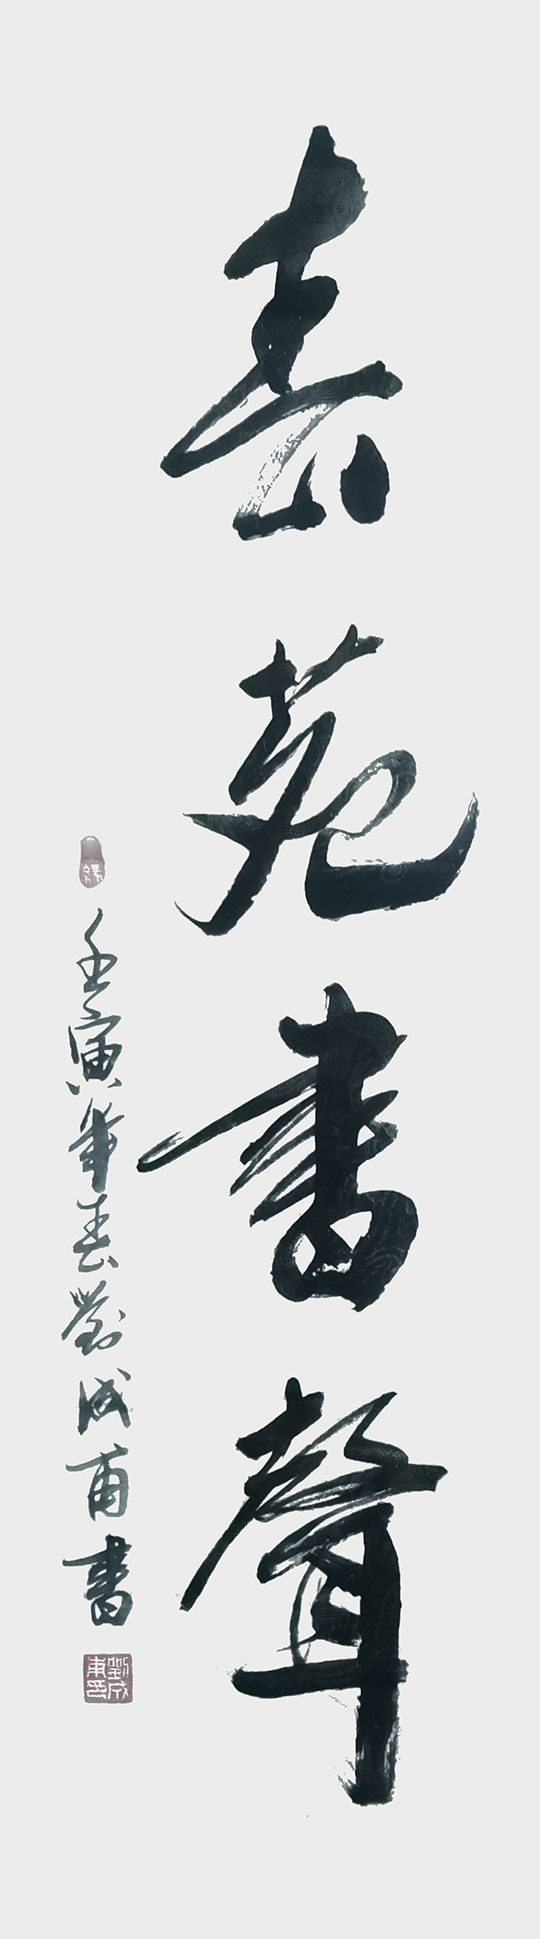 春苑書聲
壬寅年春劉成甫書
劉成甫印